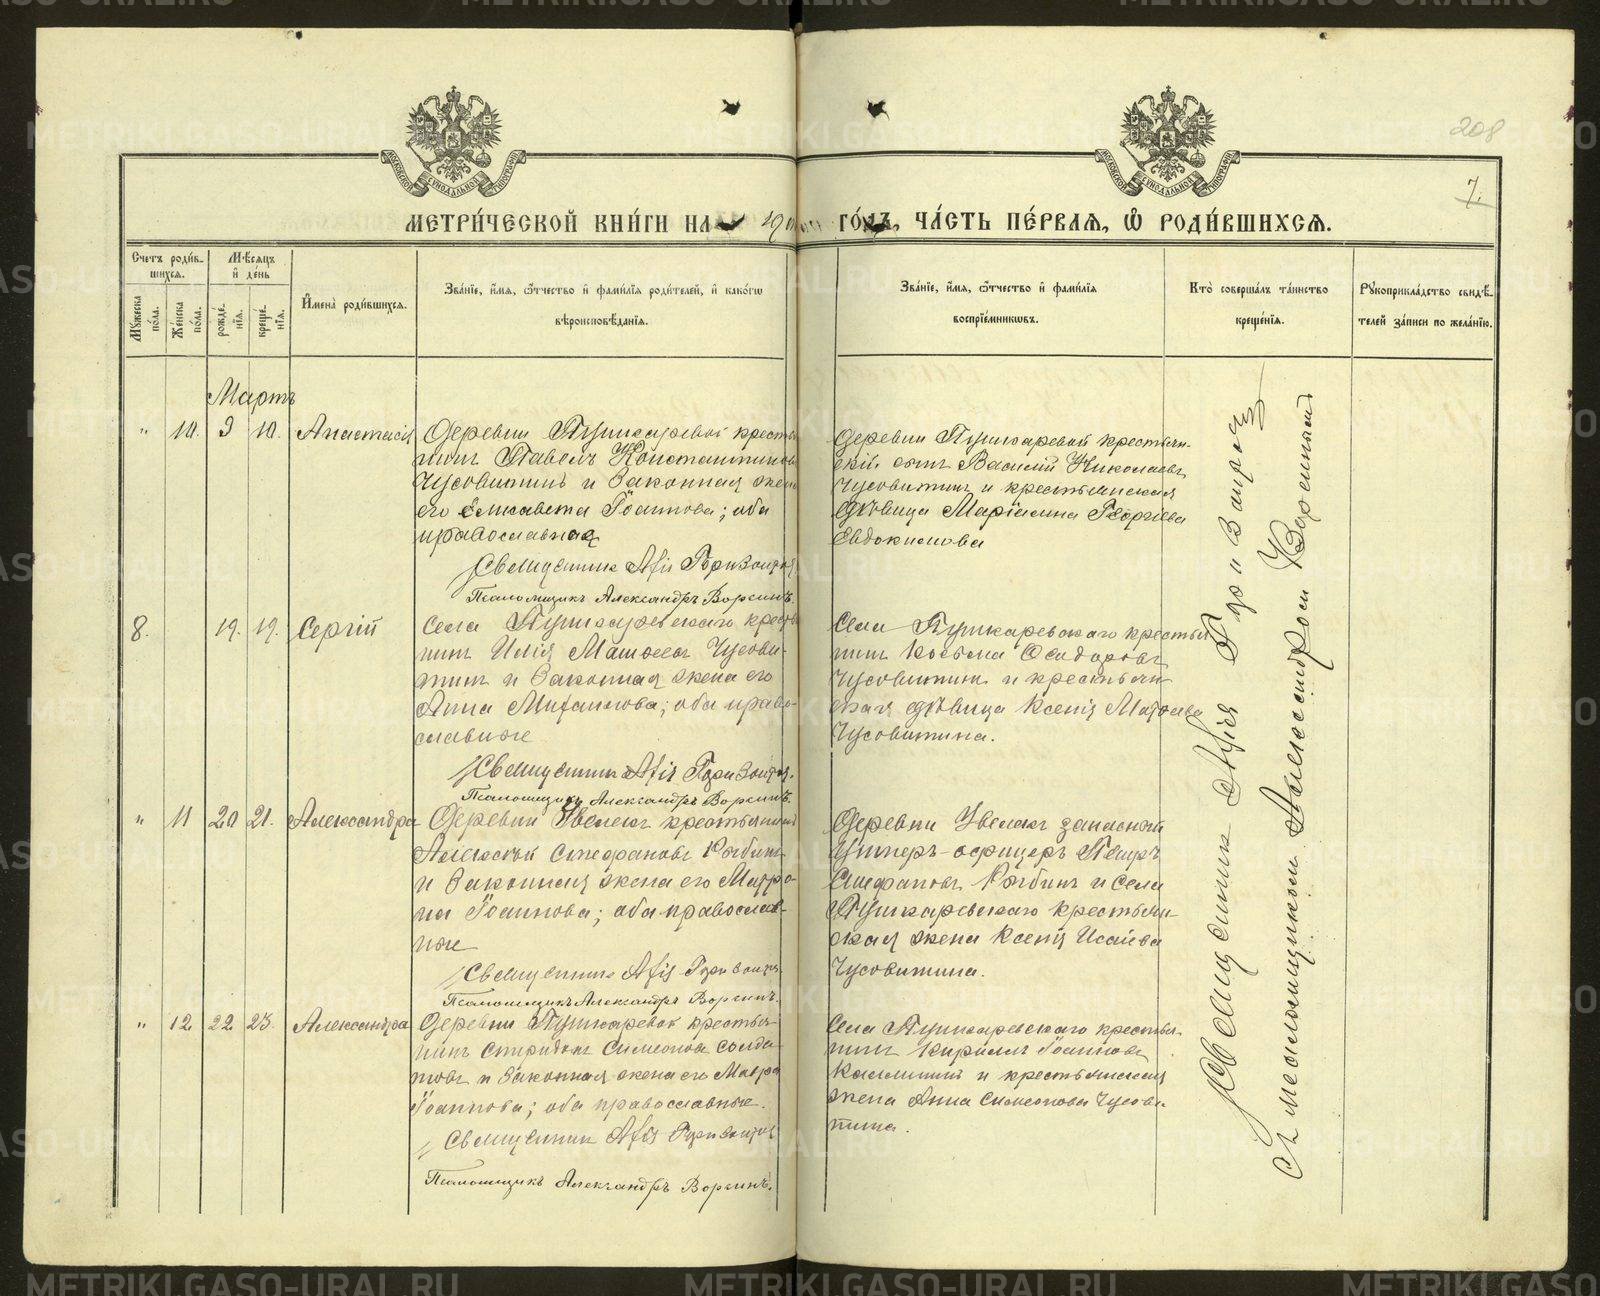 208
7.
МЕТРИ́ЧЕСКОЙ КНИ́ГИ НА ГО́ДЪ, ЧА́СТЬ ПЕ́РВАЯ, Ѡ РОДИ́ВШИХСЯ.
Счетъ роди́вшихся.
Му́жеска по́ла.
Же́нска по́ла.
Мѣ́сяцъ и҆ де́нь
рожде́нїя.
креще́нїя.
И҆мена̀ роди́вшихся.
Зва́нїе, и҆́мя, ѻ҆́тчество и҆ фами́лїя роди́телей, и҆ како́гѡ
вѣроисповѣ́данїя.
Зва́нїе, и҆́мя, ѻ҆́тчество и҆ фами́лїя
воспрїе́мникѡвъ.
Кто̀ соверша́лъ та́инство
креще́нїя.
Рꙋкоприкла́дство свидѣ́-
телей за́писи по жела́нїю.
Мартъ
" 10. 9 10. Анастасія
Деревни Пушкаревой крестья
нинъ Павелъ Константиновъ
Чусовитинъ и законная жена
его Елисавета Іоаннова; оба
православные
Священник Афія Горизонтов
Псаломщикъ Александръ Воргинъ.
Деревни Пушкаревой крестьян-
скій сынъ Василій Николаевъ
Чусовитин и крестьянская
дѣвица Маріанна Георгіева
Евдокимова
8. 19. 19. Сергій
Села Пушкаревскаго крестья
нинъ Илія Матѳеевъ Чусови-
тинъ и законная жена его
Анна Михаилова; оба право-
славные
Священник Афія Горизонтов.
Псаломщикъ Александръ Воргинъ.
Села Пушкаревскаго крестья
нинъ Косьма Исидоровъ
Чусовитинъ и крестьян-
ская дѣвица Ксенія Матѳеева
Чусовитина.
" 11 20 21. Александра
Деревни Увелекъ крестьянинъ
Алексѣй Стефановъ Рябинъ
и законная жена его Матро-
на Іоаннова; оба православ-
ные
Священник Афія Горизонтов
Псаломщикъ Александръ Воргинъ.
Деревни Увелекъ запасной
Унтеръ-офицеръ Петръ
Стефановъ Рябинъ и села
Пушкаревскаго крестьян-
ская жена Ксенія Исаіева
Чусовитина.
" 12 22 23. Александра
Деревни Пушкаревой крестья-
нинъ Спиридонъ Симеоновъ Солда-
товъ и законная жена его Мавра
Іоаннова; оба православные.
Священник Афія Горизонтов
Псаломщикъ Александръ Воргинъ.
Села Пушкаревскаго крестья-
нинъ Кириллъ Іоанновъ
и крестьянская
жена Анна Симеонова Чусови-
тина.
Священник Афія Горизонтов
съ псаломщикомъ Александромъ Воргинымъ